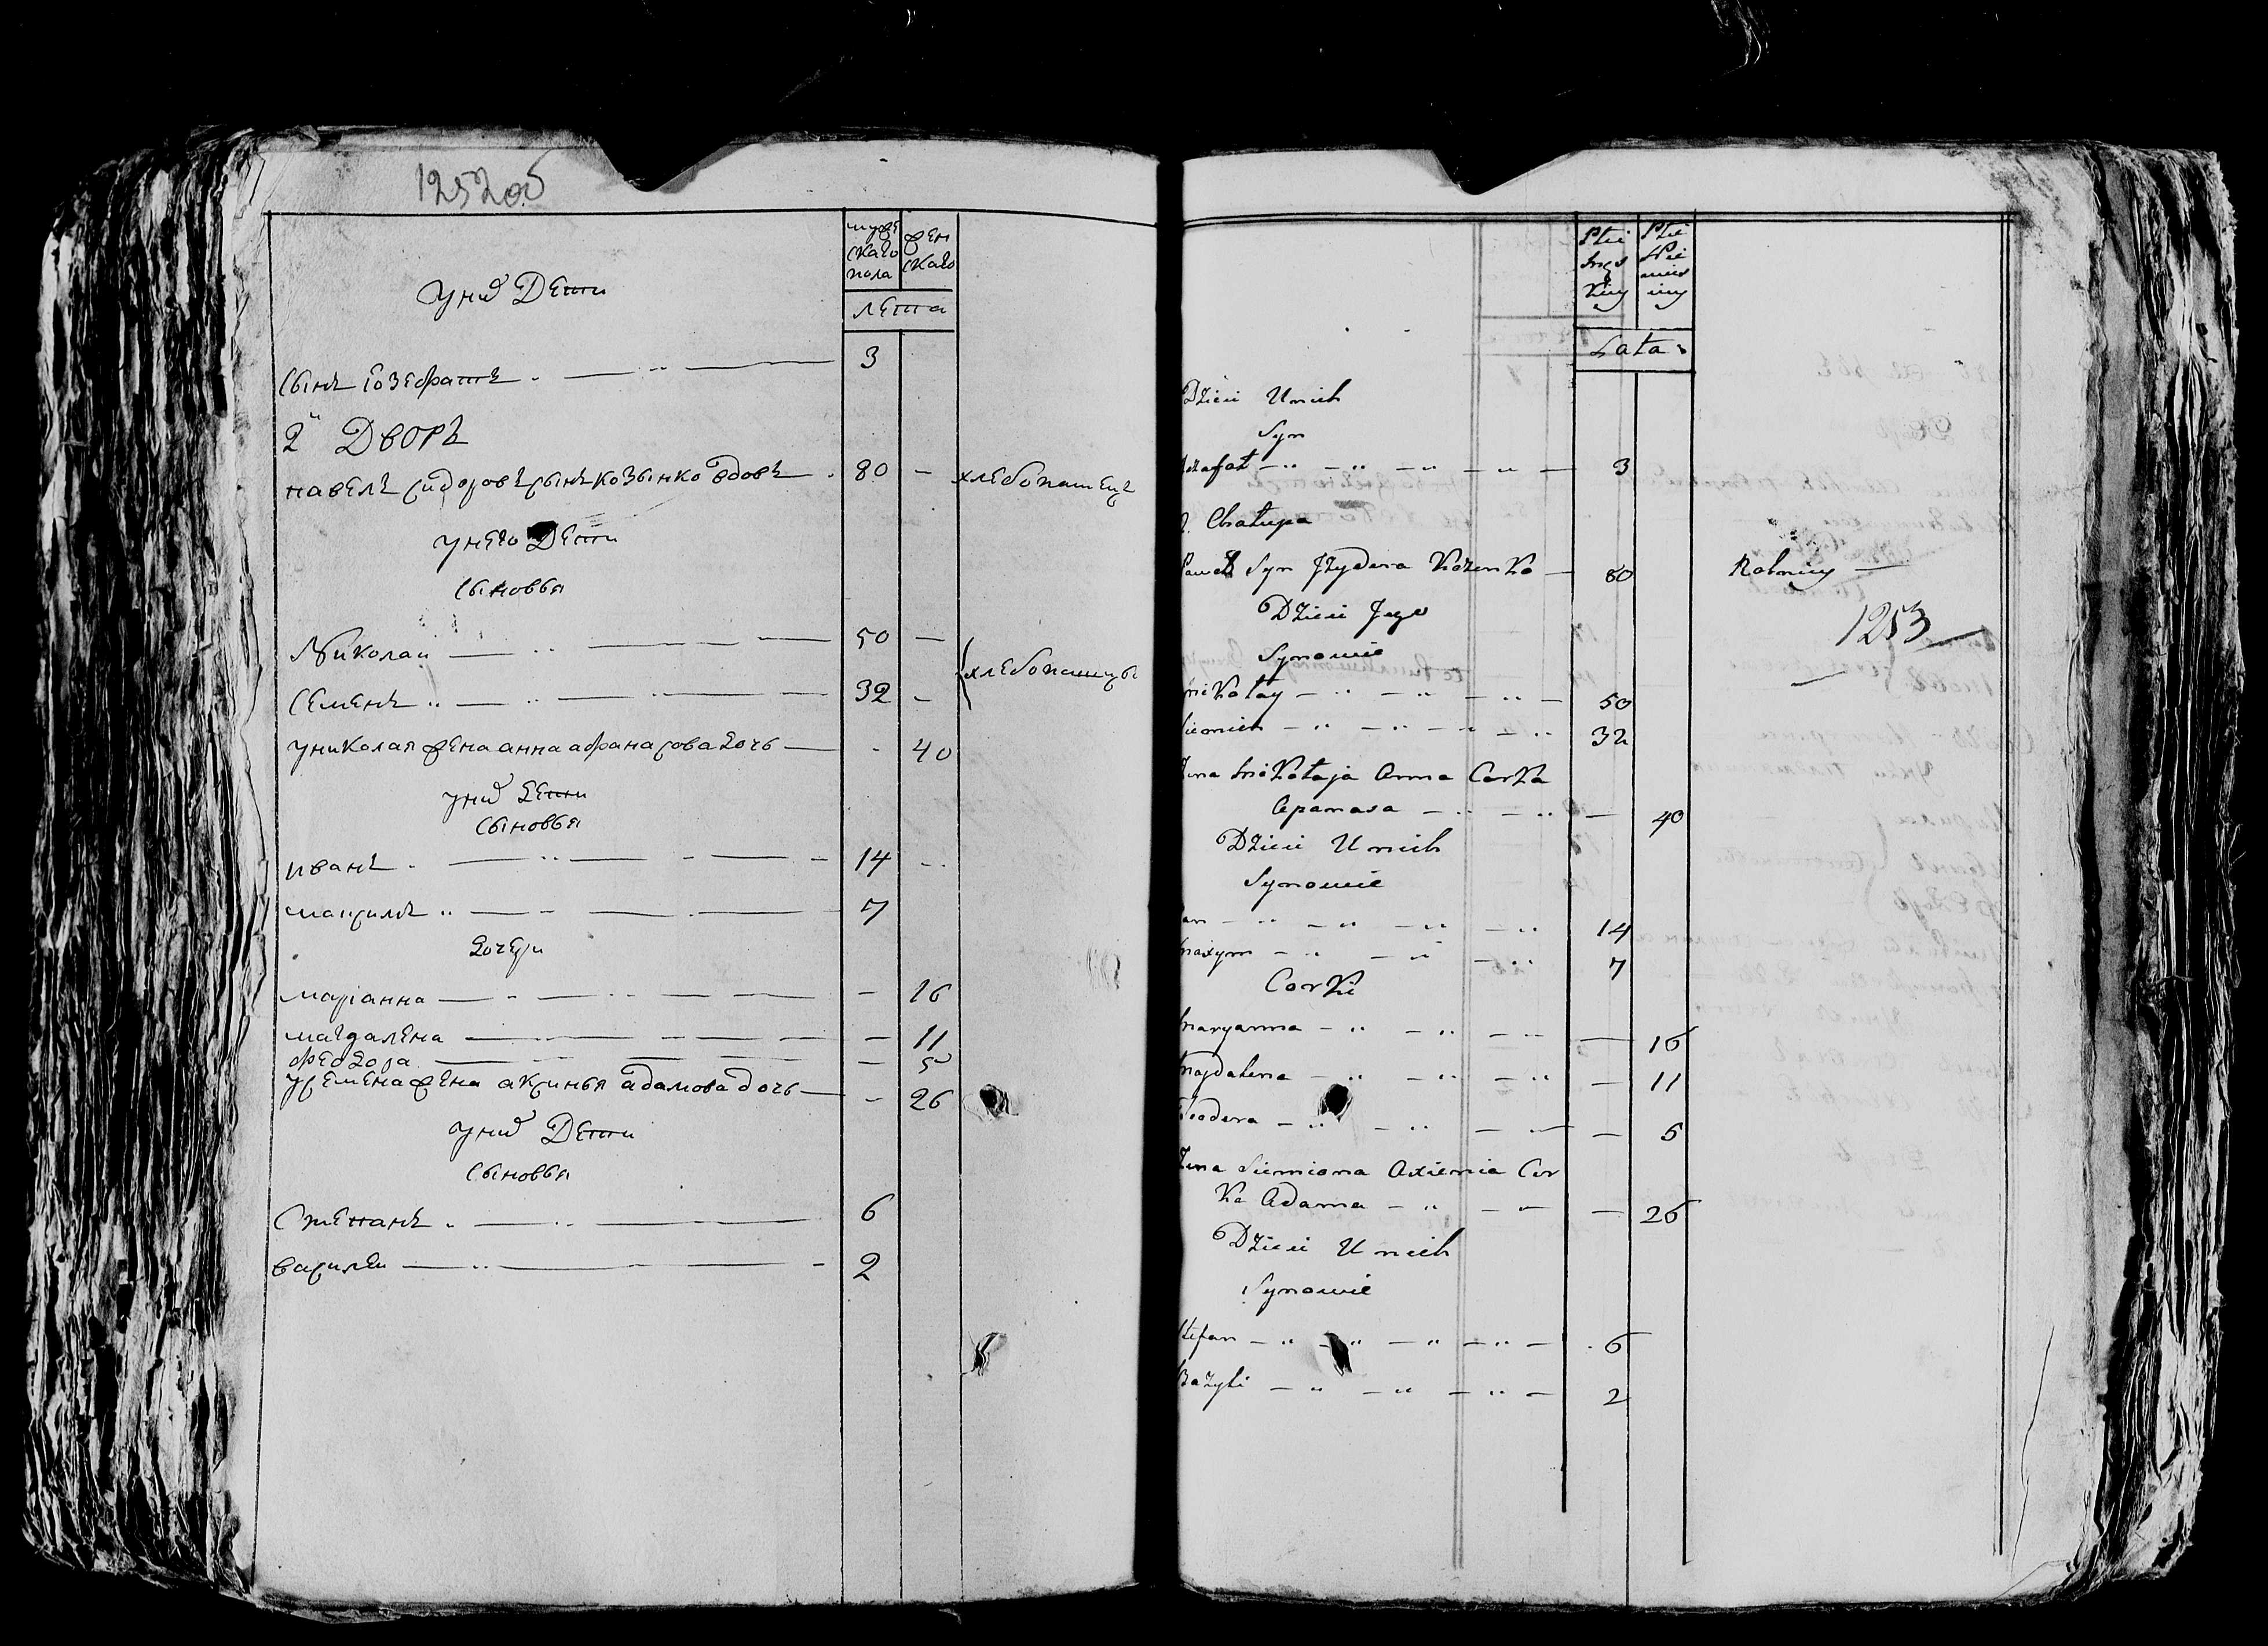 1252об
муже
скаго
пола
жен
скаго
лета
у них Дети
сынъ Иозефатъ 3
2й Дворъ
павелъ сидоровъ сынъ козынко вдовъ 80 — хлебопашецъ
у него Дети
сыновья
Николай 50 —
хлебопашцы
семенъ 32 —
у николая жена анна афанасова дочь - 40
у них дети
сыновья
иванъ 14
максимъ 7
дочери
марианна — 16
магдалена — 11
феодора — 5
у семена жена аксинья адамова дочь - 26
у них Дети
сыновья
Степанъ 6
василеи 2
Płci
męs
kiey
Płci
Nie
wies
ciey
Lata
Dzieci U nich
Syn
Jozafat 3
2. Chałupa
Paweł Syn Jzydora Kozenko 80 Rolniczy
1253
Dzieci Jego
Synowie
Mikołay 50
Siemion 32
Żona Mikołaja Anna Corka
Apanasa — 40
Dzieci U nich
Synowie
Jan 14
Maxym 7
Corki
Maryanna — 16
Magdalena — 11
Teodora — 5
Żona Siemiona Axienia Cor
ka Adama — 26
Dzieci U nich
Synowie
Stefan 6
Bazyli 2